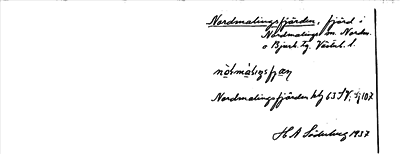 Nordmalingsfjärden, fjärd i
Nordmalings sn. Nordm.
o Bjurh. tg. Västerb. l.
Nordmalingsfjärden kbl 63 SV.
H A Söderberg 1937